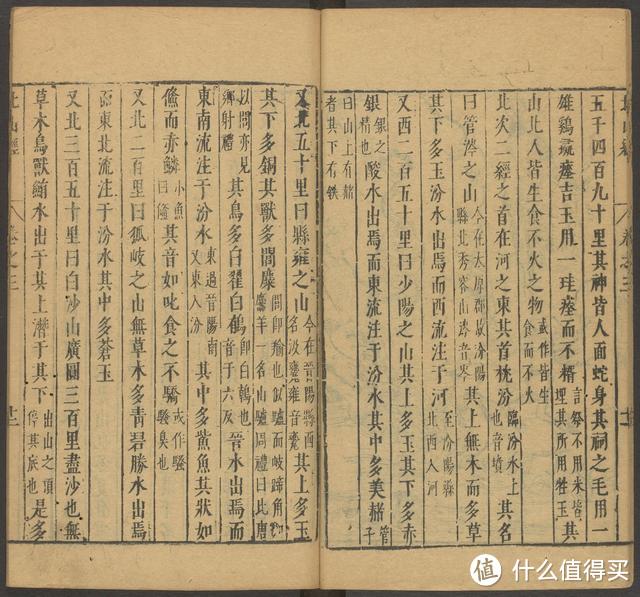 北山經 卷之三
五千四百九十里其神皆人面蛇身其祠之毛用一
雄鷄彘瘞吉玉用一珪瘞而不糈言祭不用米皆埋其所用牲玉其
山北人皆生食不火之物或作皆生食而不火
北次二經之首在河之東其首枕汾臨汾水上也音墳其名
曰管涔之山今在太原郡故汾陽縣北秀容山涔音岑其上無木而多草
其下多玉汾水出焉而西流注于河至汾陽縣北西入河
又西二百五十里曰少陽之山其上多玉其下多赤
銀銀之精也酸水出焉而東流注于汾水其中多美赭管子
曰山上有赭者其下有鉄
又北五十里曰縣雍之山今在晉陽縣西名汲甕雍音甕其上多玉
其下多銅其獸多閭麋閭即羭也似驢而岐蹄角如麢羊一名山驢周禮曰此唐
以問亦見鄉射禮其鳥多白翟白鵺即白鵺也音于六反晉水出焉而
東南流注于汾水東過晉陽南又東入汾其中多鮆魚其狀如
儵而赤鱗小魚曰儵其音如叱食之不驕或作騷騷臭也
又北二百里曰狐岐之山無草木多青碧勝水出焉
而東北流注于汾水其中多蒼玉
又北三百五十里曰白沙山廣圓三百里盡沙也無
草木鳥獸鮪水出于其上潛于其下出山之頂停其底也是多
北山經 卷之三
值 什么值得买